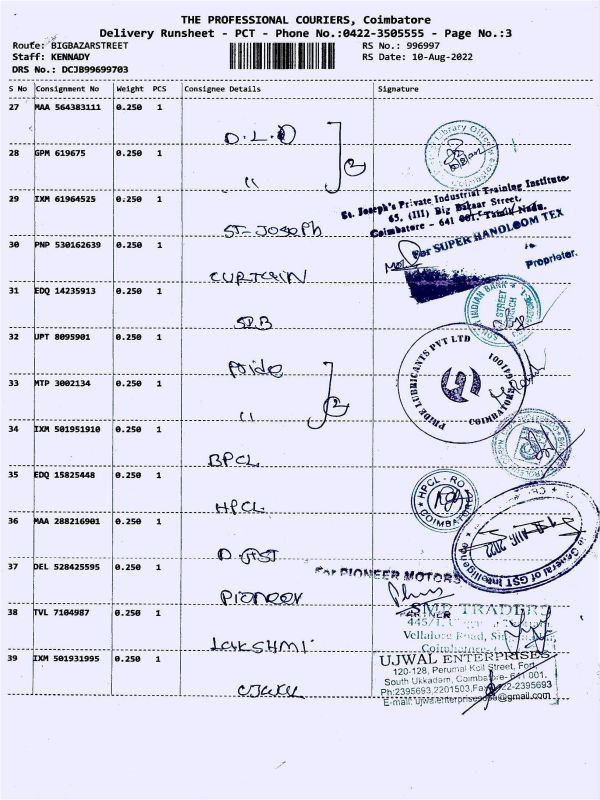 THE PROFESSIONAL COURIERS, Coimbatore
Delivery Runsheet - PCT - Phone No.:0422-3505555 - Page No.:3
Route: BIGBAZARSTREET
RS No.: 996997
Staff: KENNADY
RS Date: 10-Aug-2022
DRS No.: DCJB99699703
S No Consignment No Weight PCS Consignee Details Signature
27 MAA 564383111 0.250 1
D.L.O
28 GPM 619675 0.250 1
"
2
Library Office
29 IXM 61964525 0.250 1
ST-JOSEPH
St. Joseph's Private Industrial Training Institute
65, (III) Big Bazaar Street,
Coimbatore - 641 001. Tamil Nadu.
30 PNP 530162639 0.250 1
CURTAIN
For SUPER HANDLOOM TEX
Proprietor.
31 EDQ 14235913 0.250 1
SIB
INDIAN BANK
STREET
32 UPT 8095901 0.250 1
Pride
33 MTP 3002134 0.250 1
"
2
PRIDE LUBRICANTS PVT LTD
COIMBATORE
34 IXM 501951910 0.250 1
BPCL
35 EDQ 15825448 0.250 1
HPCL
HPCL - RO
COIMBATORE
36 MAA 288216901 0.250 1
D.GST
General of GST Intelligence
AUG 2022
37 DEL 528425595 0.250 1
Pioneer
For PIONEER MOTORS
PARTNER
38 TVL 7104987 0.250 1
LAKSHMI
SMP TRADERS
Vellalore Road,
Coimbatore
39 IXM 501931995 0.250 1
UJWAL ENTERPRISES
120-128, Perumal Koil Street, Fort,
South Ukkadam, Coimbatore- 641 001.
Ph:2395693,2201503,Fax:0422-2395693